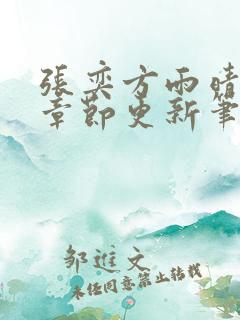 張奕方雨晴
章節更新筆
鄒進文
未經同意禁止轉載